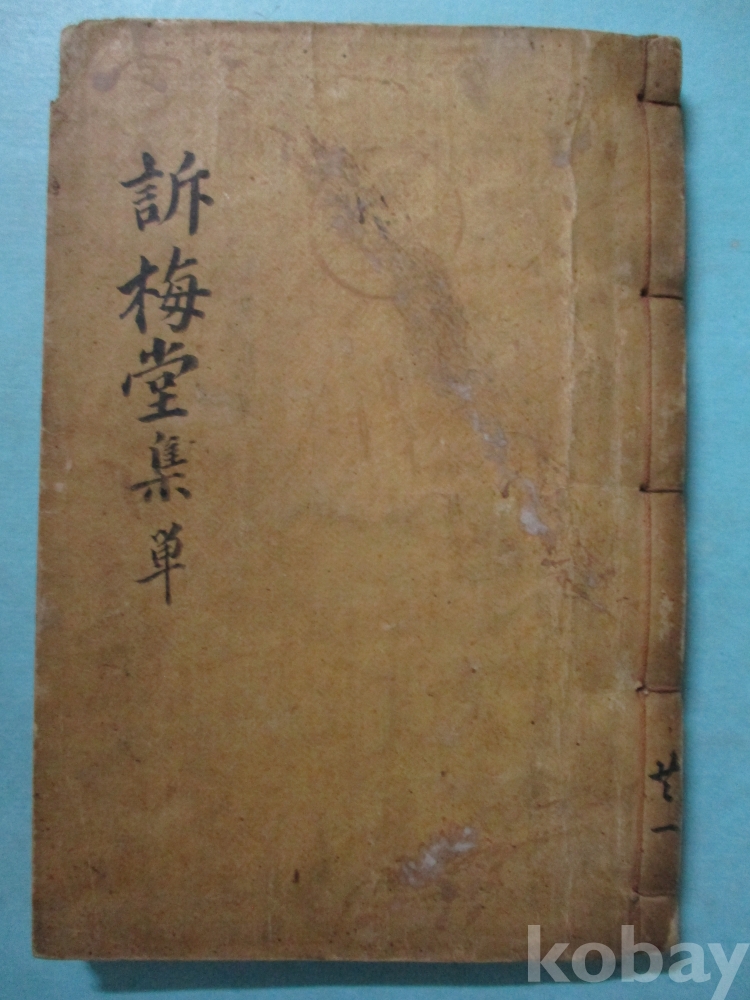 訴梅堂集 单
共一
kobay